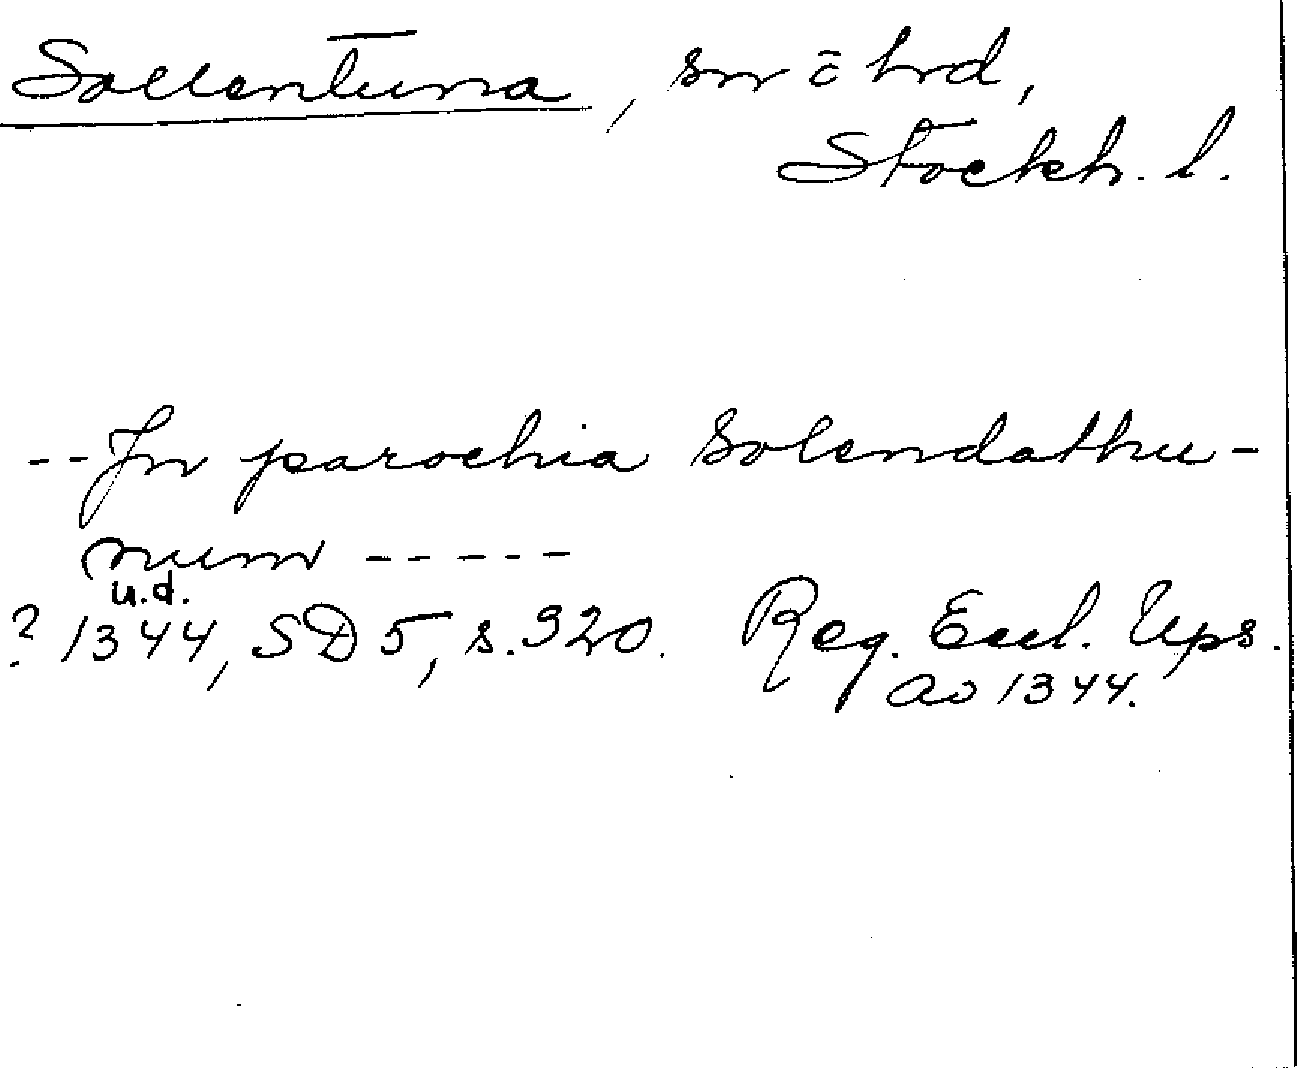 Sollentuna, sn o hrd,
Stockh. l.
--In parochia Solendathu-
num -----
u.d.
? 1344, SD 5, s. 320. Reg. Eccl. Ups.
ao 1344.